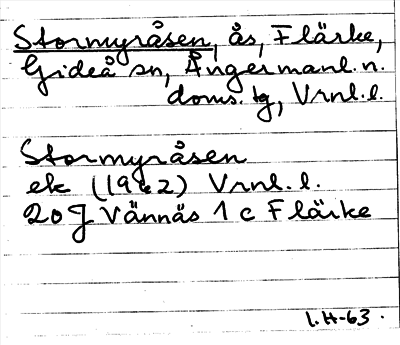 Stormyråsen, ås, Flärke,
Gideå sn, Ångermanl. n.
doms. tg, Vrnl.l.
Stormyråsen
ek (1962) Vrnl.l.
20J Vännäs 1 c Flärke
l. H-63.